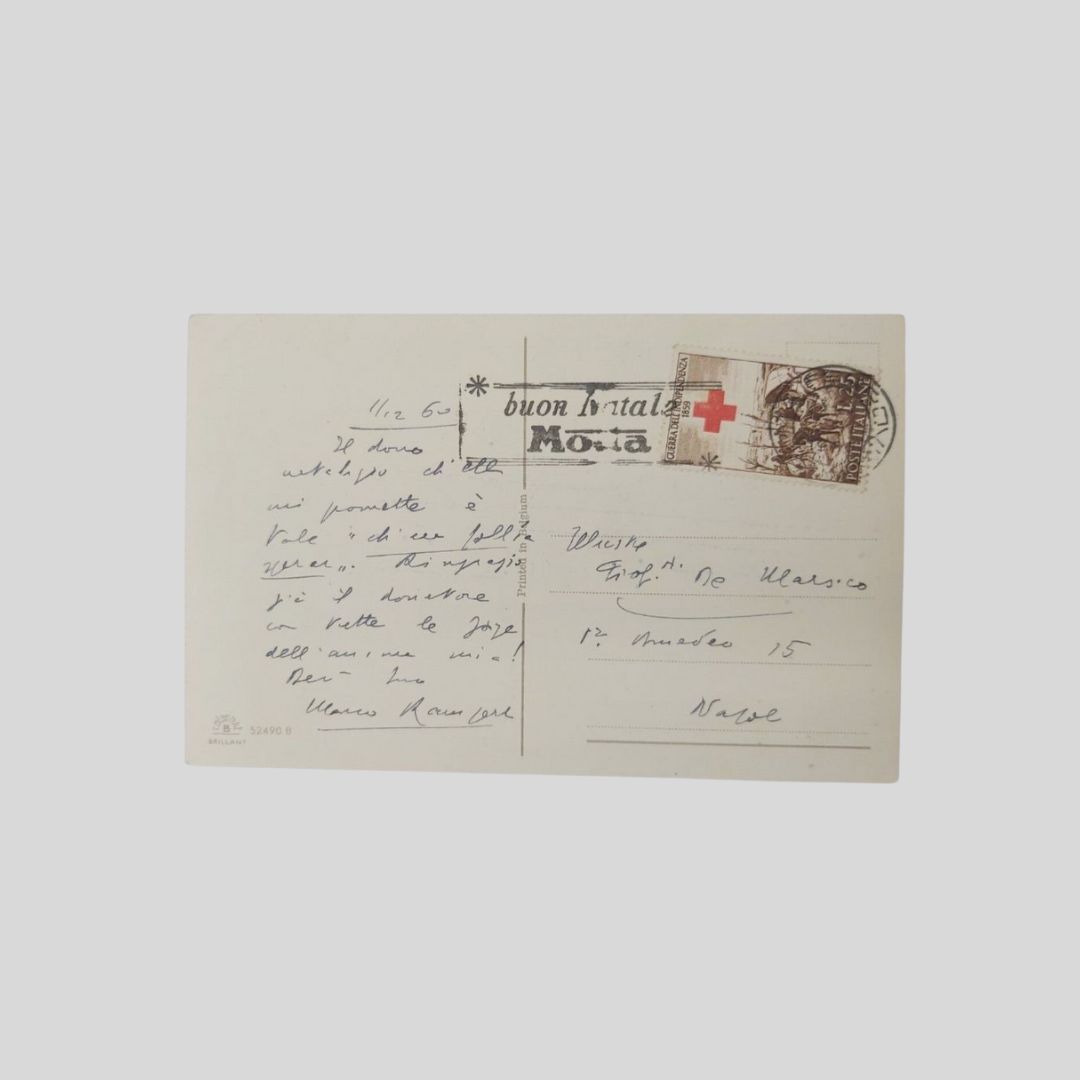 buon Natale
Motta
GUERRA DELL'INDIPENDENZA
1859
L. 25
POSTE ITALIANE
11/12 60
Il dono
natalizio ch'ella
mi promette è
"di
Ringrazio
già il donatore
con tutte le forze
dell'anima mia!
Dev. Suo
Marco
Printed in Belgium
B
BRILLANT
52490 B
Illustre
Prof. De Marsico
Amedeo 15
Napoli